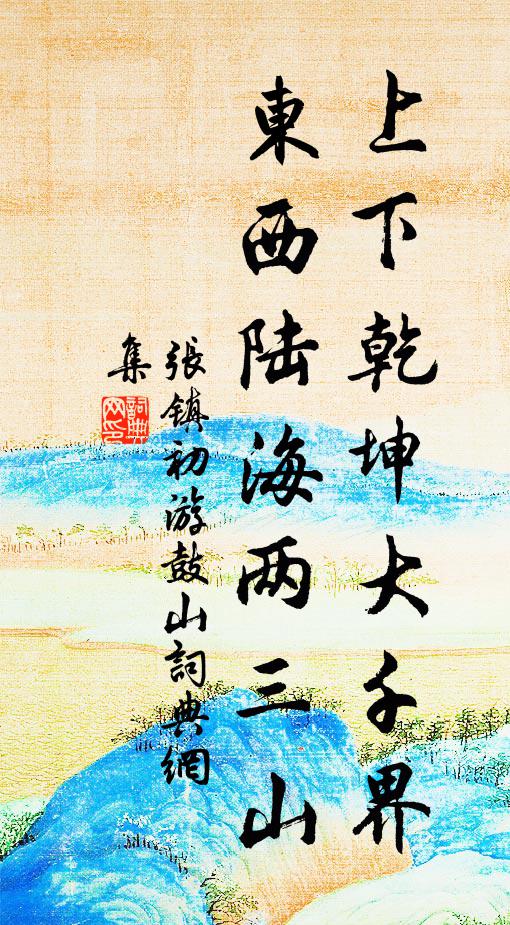 上下乾坤大千界
東西陆海两三山
張镇初游鼓山詞典網
集
詞典網印